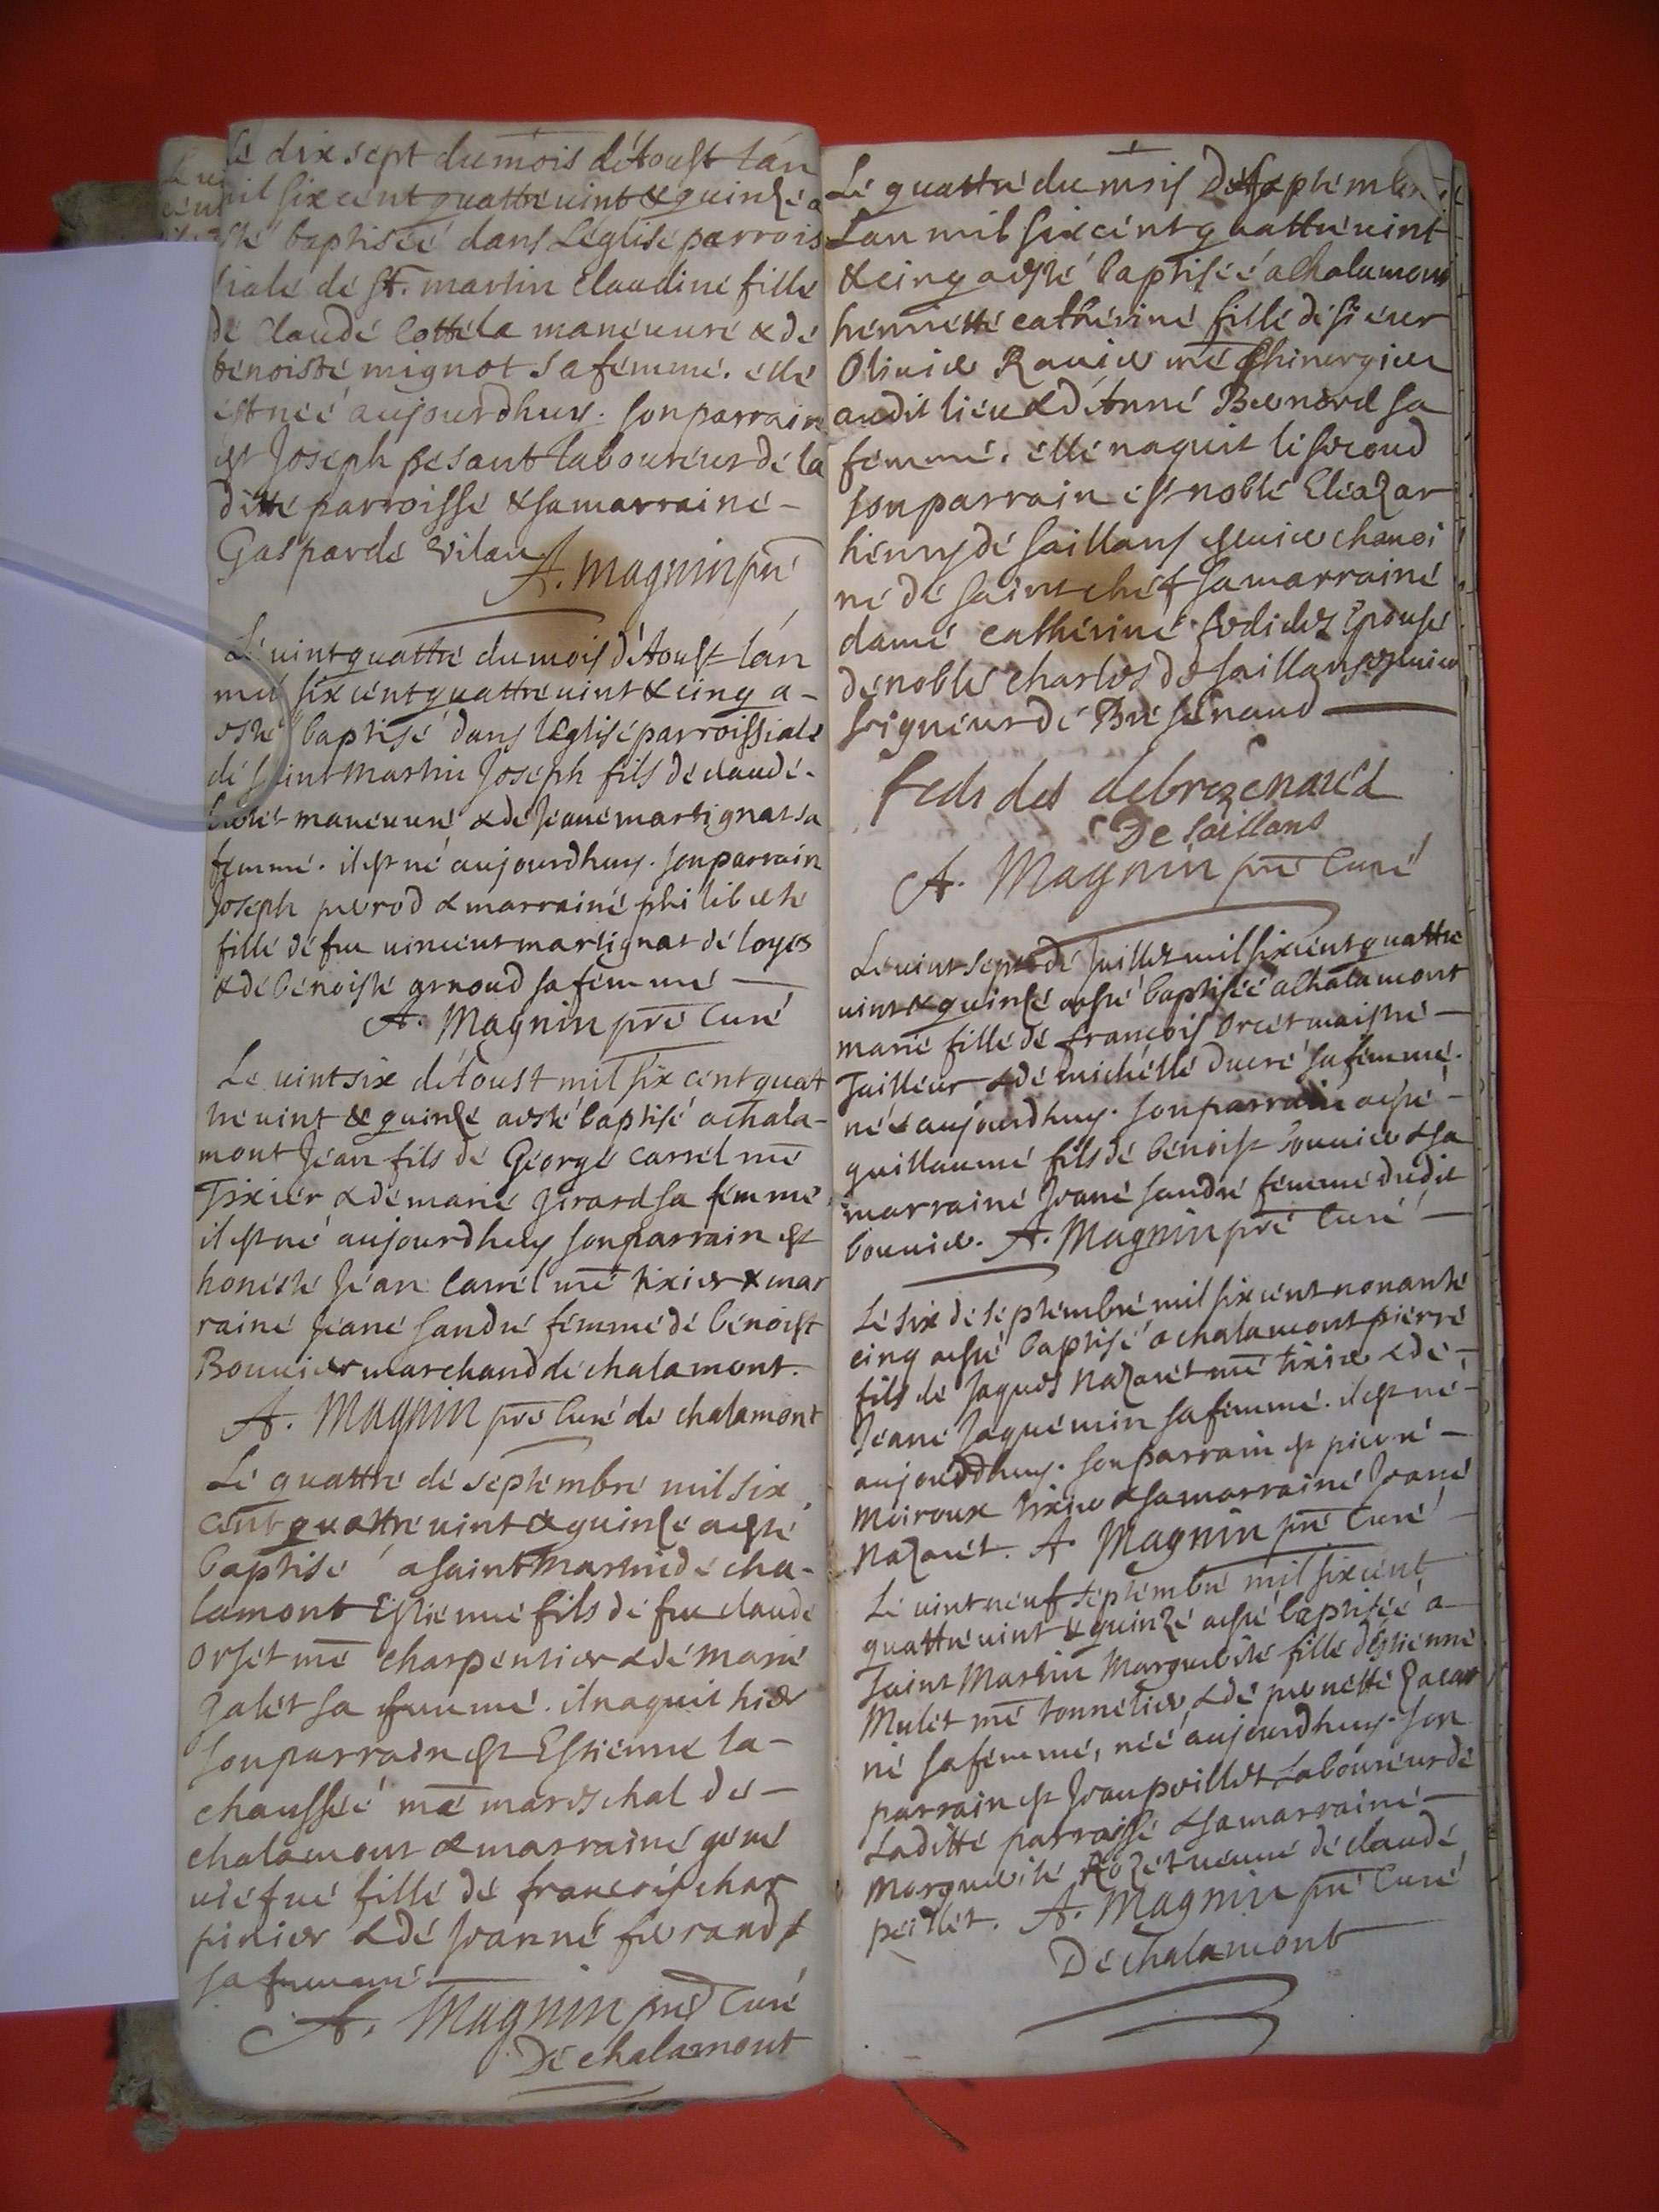 Le dix sept du mois d'Aoust lán
mil six cent quattre uint & quinzé a
esté baptiseé dans Léglisé parrois
sialé dé St. martin Claudiné fille
dé Claudé Cottéla maneuuré & dé
bénoisté mignot sa fémmé. ellé
est neé aujourdhuy. son parrain
est Joseph pesant laboureur dé la
ditté parroissé & sa marrainé -
Gaspardé vilan
A. Magnin pré
Lé uint quattré du mois d'Aoust lán
mil six cent quattre uint & cinq a -
esté baptisé dans lEglisé parroissialé
dé saint Martin Joseph fils dé claudé -
maneuuré & dé Jeané martignat sa
femmé. il est né aujourdhuy. son parrain
Joseph perrod & marrainé philiberté
fillé dé feu uincent martignat dé loyes
& dé bénoisté arnoud sa fémmé -
A. Magnin pré Curé
Le uint six d'Aoust mil six cént quat
tre uint & quinze a esté baptisé a chala-
mont Jéan fils dé Géorgé Carrél mé
Tixiér & dé marié Girard sa fémmé
il est né aujourdhuy son parrain est
honésté Jéan Carrél mé tixier & mar
rainé Jéané sandré fémmé dé bénoist
Bouuier marchand dé chalamont.
A. Magnin pré Curé de chalamont
Lé quattré dé séptémbré mil six
cént quattré uint & quinzé a esté
baptisé a saint Martin dé cha-
lamont Estienné fils dé feu claudé
Orsét mé charpentier & dé Marié
Galét sa femmé. il naquit hier
son parrain est Estienné la-
chaussée mé mareschal dé -
chalamont & marrainé géné
uiefué fillé dé françois char
pinier & dé Jeanné ferrand
sa femmé.
A. Magnin pré Curé
Dé chalamont
Lé quattré du mois Dé septémbré
Lan mil six cént quattré uint
& cinq a esté baptiséé a Chalamont
henriétté cathériné fillé dé siéur
Oliuier Rauier mé Chirurgien
audit liéu & d'Anné Bernard sa
fémmé. éllé naquit lé second
son parrain est noblé Eléazar
hénry dé saillans chanoi
né dé saint chéf & sa marrainé
damé cathériné fedides Epousé
dé noblé Charles dé saillans
seigneur dé Brésénaud
fedides debrezenaud
De saillans
A. Magnin pré Curé
Lé uint sept dé Juillet mil six cent quattré
uint & quinzé a esté baptiséé a chalamont
marié fillé dé françois Orcét maistré -
Tailléur & dé michéllé ducré sa fémmé.
néé aujourdhuy. son parrain a esté -
guillaumé fils dé bénoist Bouuier & sa
marrainé Jeané sandré fémmé dudit
bouuier. A. Magnin pré Curé -
Lé six dé séptémbré mil six cént nonanté
cinq a esté baptisé a chalamont piérré
fils de Jaques Nazarét mé tixier & dé -
Jéané Jaquémin sa fémmé. il est né -
aujourdhuy. son parrain est pierré -
Moiroux tixier & sa marrainé Jeané
Nazarét. A. Magnin pré Curé -
Lé uint neuf séptembré mil six cént
quattré uint & quinzé a esté baptiséé a
saint Martin Marguerité fillé d'Estienné
Mulét mé tonnélier & dé pernétté
né sa fémmé, néé aujourdhuy. son
parrain est Jean peillet Laboureur dé
Laditté parroissé & sa marrainé -
Margueité Rozét ueuué dé claudé
peillét. A. Magnin pré Curé
Dé chalamont